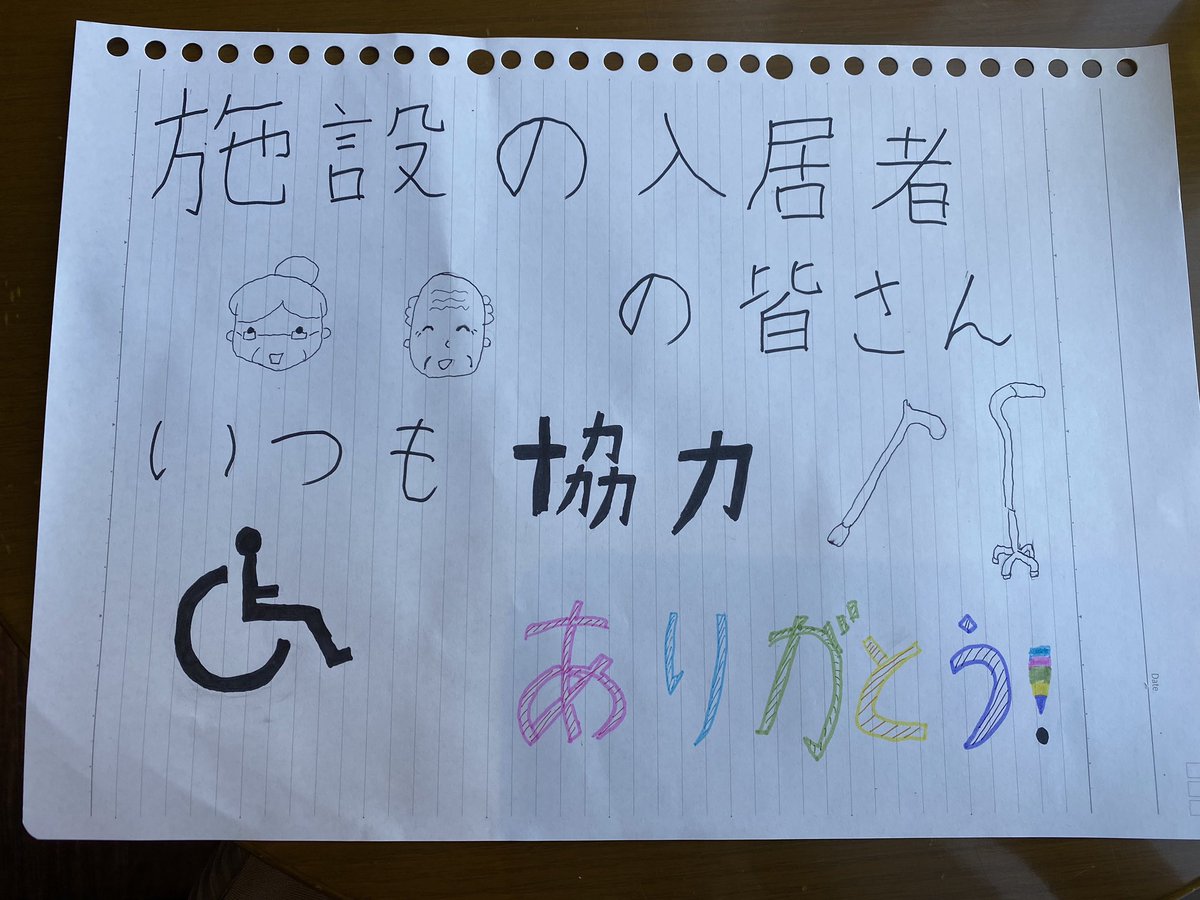 施設の入居者
の皆さん
いつも協力
ありがとう!
Date